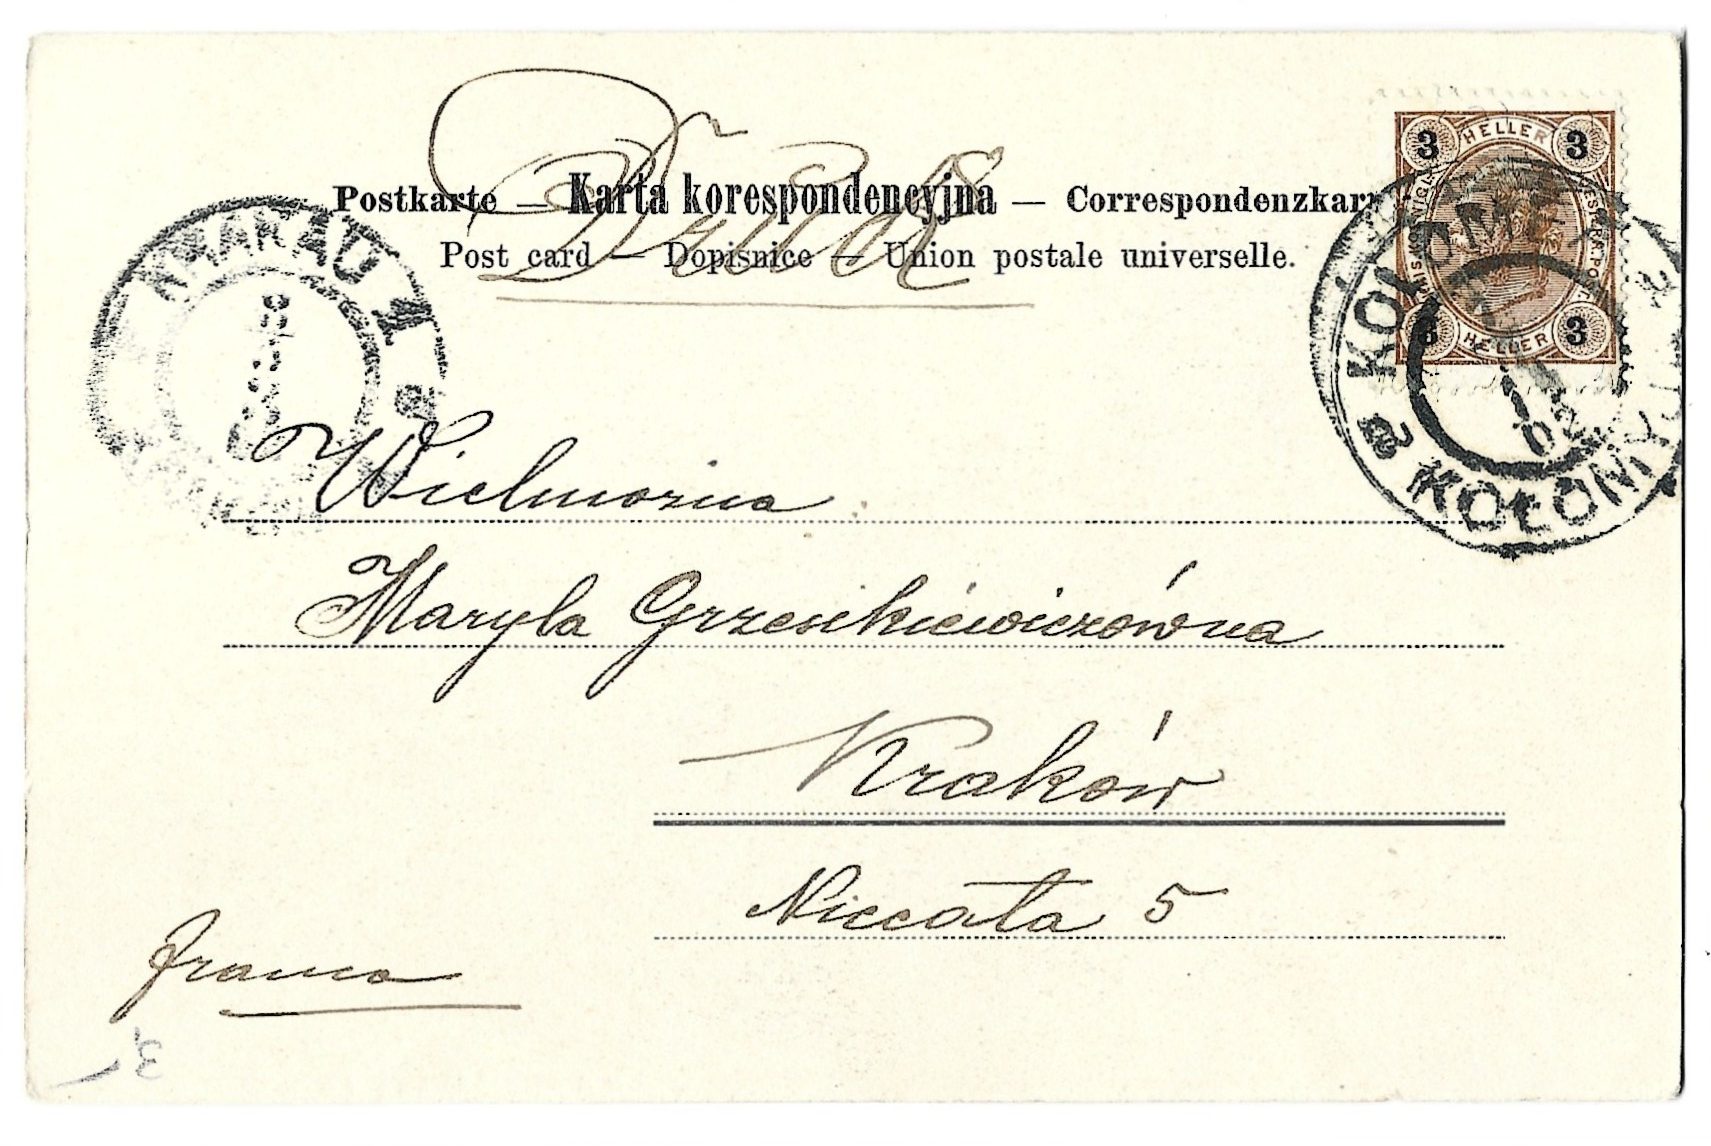 Druck
Postkarte — Karta korespondencyjna — Correspondenzkar
Post card — Dopisnice — Union postale universelle.
3 HELLER 3
3 HELLER 3
KOLOMEA
KOŁOMYJA
02
KRAKAU 1
Wielmożna
Maryla Grzesikiewiczówna
Kraków
Niecała 5
franco
3